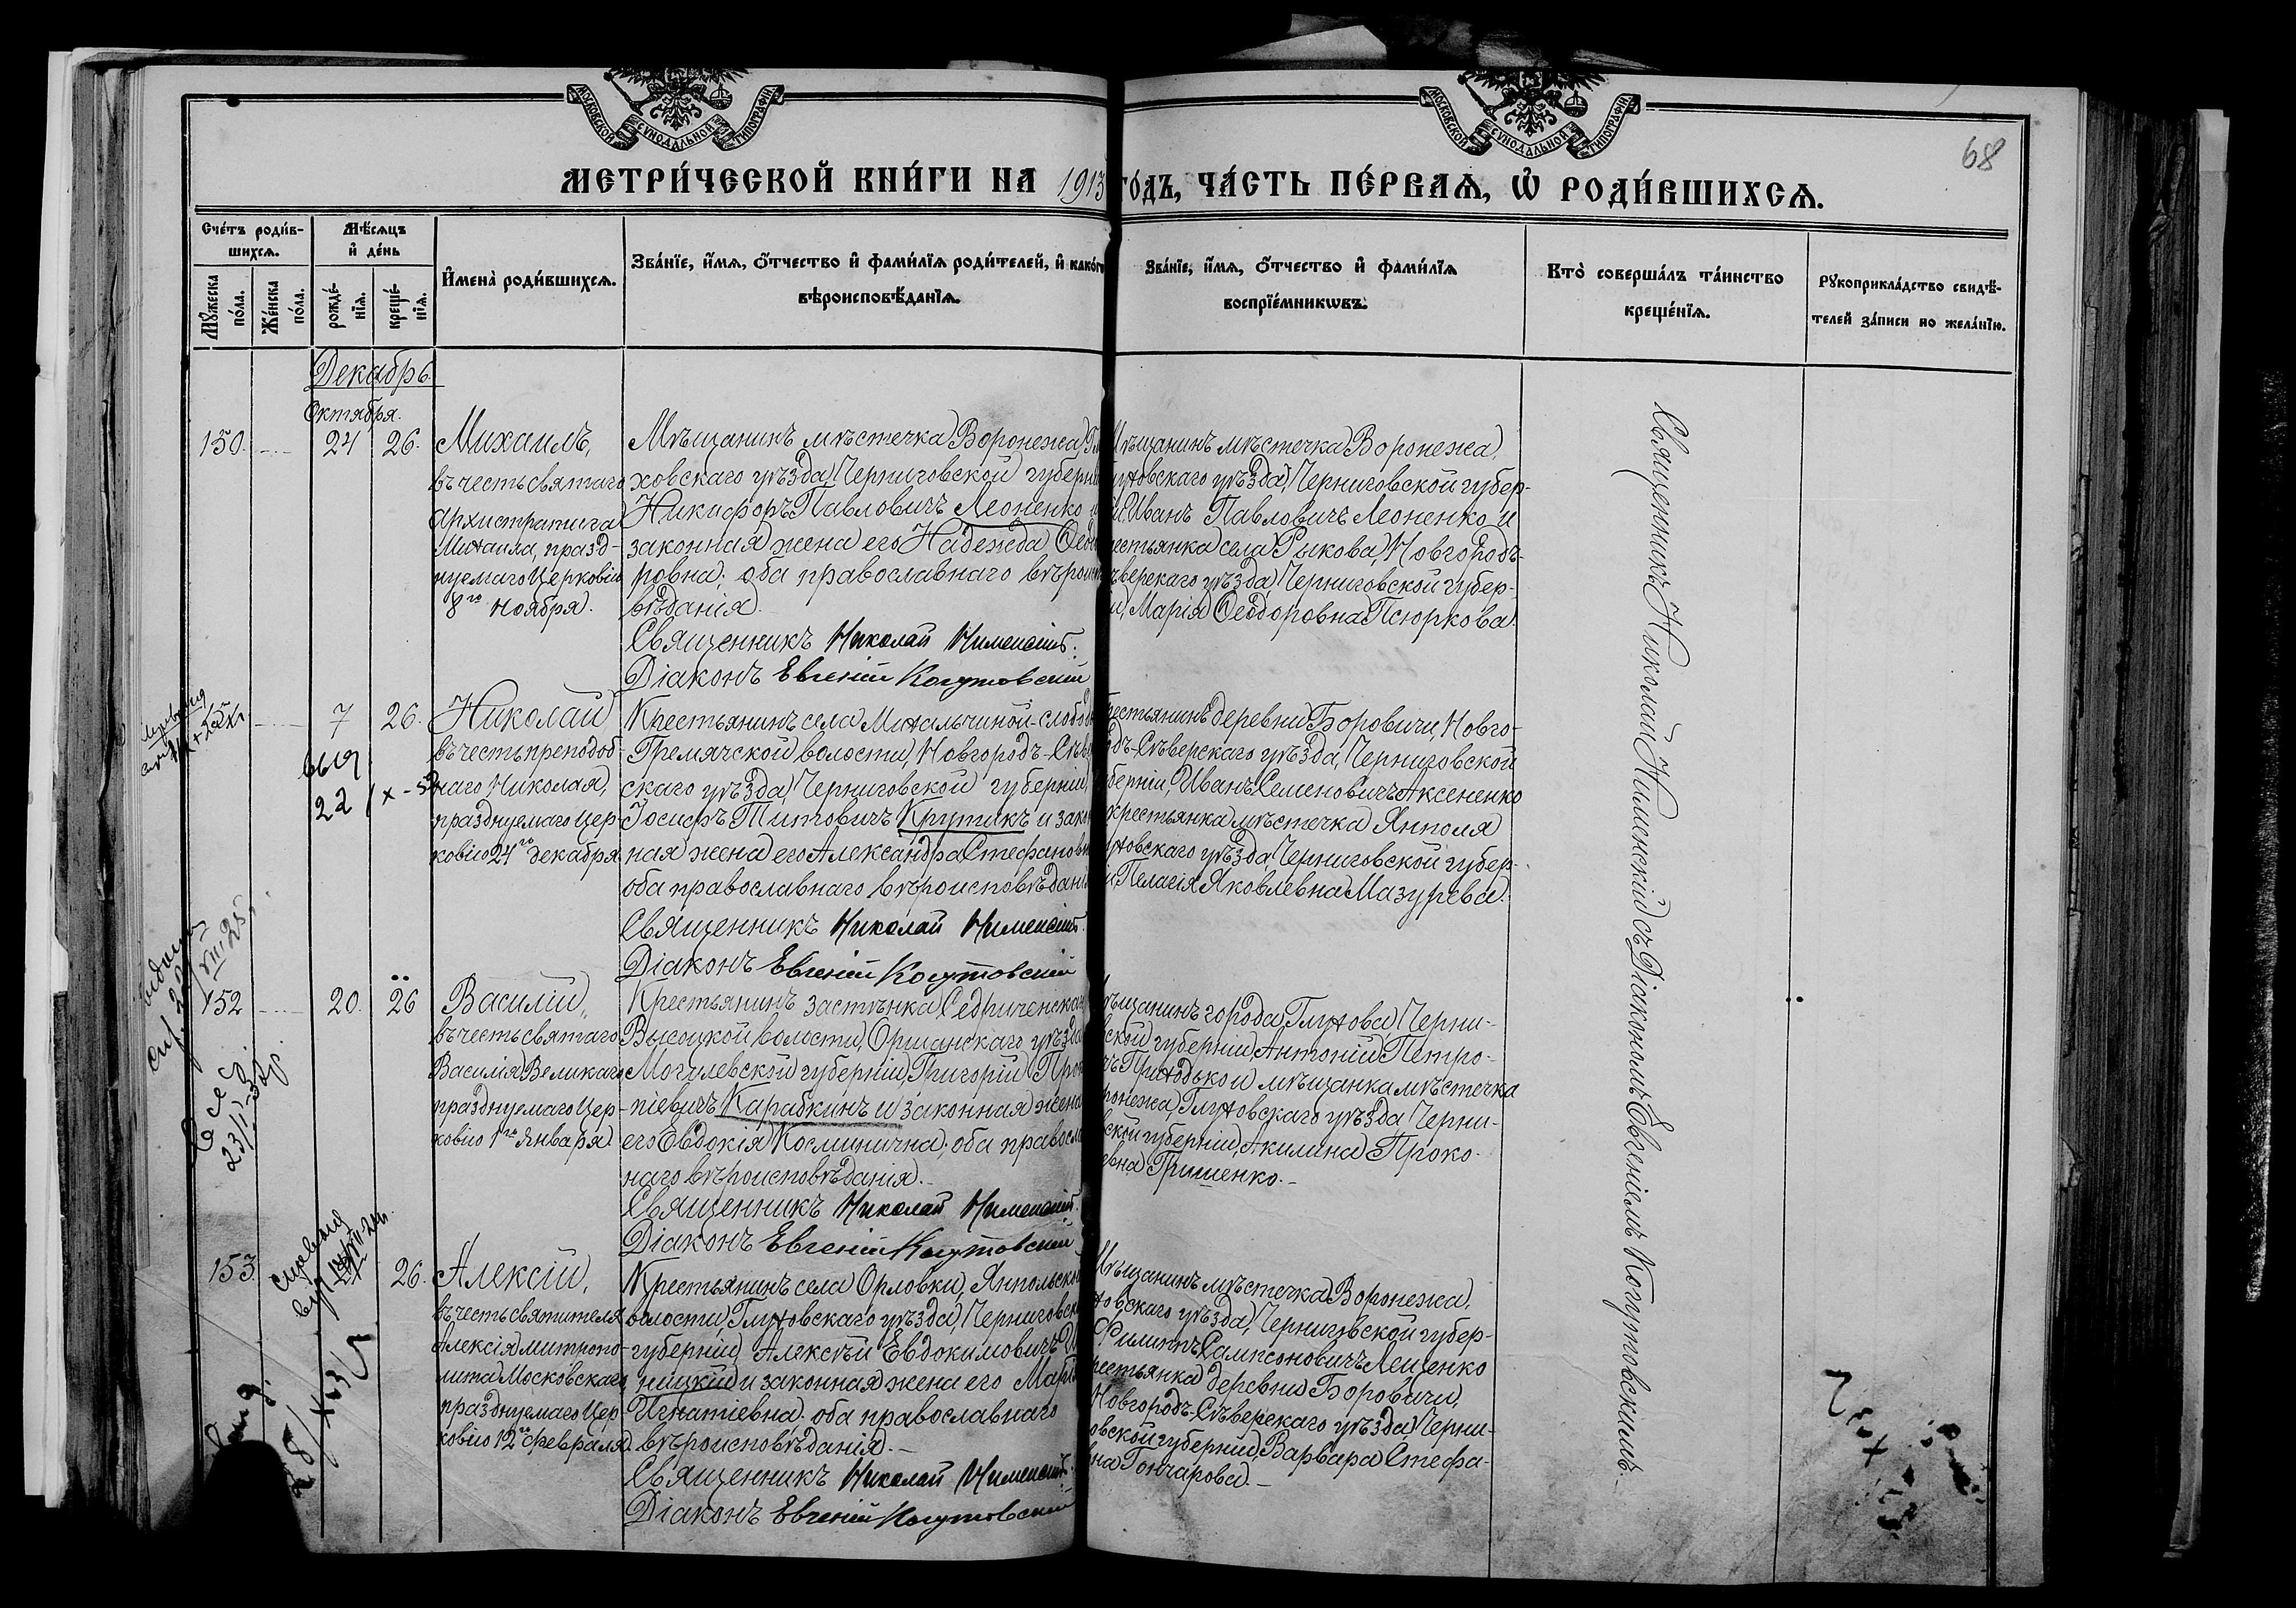 МОСКОВСКОЙ СѴНОДАЛЬНОЙ ТИПОГРАФІИ
МОСКОВСКОЙ СѴНОДАЛЬНОЙ ТИПОГРАФІИ
68
МЕТРИ́ЧЕСКОЙ КНИ́ГИ НА 1913 ГО́ДЪ, ЧА́СТЬ ПЕ́РВАѦ, Ѡ РОДИ́ВШИХСѦ.
Сче́тъ роди́в-
шихсѧ.
Мꙋ́жеска по́ла.
Же́нска по́ла.
Мѣ́сѧцъ
и҆ де́нь
рожде́-
нїѧ.
креще́-
нїѧ.
И҆мена̀ роди́вшихсѧ.
Зва́нїе, и҆́мѧ, ѻ҆́тчество и҆ фами́лїѧ роди́телей, и҆ како́гѡ
вѣроисповѣ́данїѧ.
Зва́нїе, и҆́мѧ, ѻ҆́тчество и҆ фами́лїѧ
воспрїе́мникѡвъ.
Кто̀ соверша́лъ та́инство
креще́нїѧ.
Рꙋкоприкла́дство свидѣ́-
телей за́писи по жела́нїю.
Декабрь
Октября.
150. 24 26.
Михаилъ,
въ честь святаго
Архистратига
Михаила, празд-
нуемаго Церковію
8го ноября.
Мѣщанинъ мѣстечка Воронежа, Глу
ховскаго уѣзда, Черниговской губерніи
Никифоръ Павловичъ Леоненко и
законная жена его Надежда Ѳеодо
ровна; оба православнаго вѣроиспо
вѣданія.
Священникъ Николай Нименскій.
Діаконъ Евгеній Когутовскій
Мѣщанинъ мѣстечка Воронежа,
уховскаго уѣзда, Черниговской губер-
и, Иванъ Павловичъ Леоненко и
рестьянка села Рыкова, Новгородъ-
верскаго уѣзда, Черниговской губер-
и, Марія Ѳеодоровна Псюркова.
7 26.
Николай
въ честь преподоб-
наго Николая,
празднуемаго Цер-
ковію 24го декабря
Крестьянинъ села Михальчиной-слободы
Гремячской волости, Новгородъ-Сѣвер
скаго уѣзда, Черниговской губерніи,
Іосифъ Титовичъ Крутикъ и закон
ная жена его Александра Стефановна
оба православнаго вѣроисповѣданія
Священникъ Николай Нименскій.
Діаконъ Евгеній Когутовскій
рестьянинъ деревни Боровичи, Новго-
одъ-Сѣверскаго уѣзда, Черниговской
уберніи, Иванъ Семеновичъ Аксененко
крестьянка мѣстечка Янполя
уховскаго уѣзда, Черниговской губер-
и, Пелагія Яковлевна Мазурева.
152 20. 26
Василій,
въ честь святаго
Василія Великаго
празднуемаго Цер-
ковію 1го января
Крестьянинъ застѣнка Седриченская
Высоцкой волости, Оршанскаго уѣзда
Могилевской губерніи, Григорій Прок
піевичъ Карабкинъ и законная жена
его Евдокія Косминична; оба правосла
наго вѣроисповѣданія.-
Священникъ Николай Нименскій.
Діаконъ Евгеній Когутовскій
ѣщанинъ города Глухова, Черни-
вской губерніи, Антоній Петро-
чъ Приходько и мѣщанка мѣстечка
ронежа, Глуховскаго уѣзда Черни-
ской губерніи, Акилина Проко-
евна Гришенко.-
153 26.
Алексій,
въ честь святителя
Алексія митропо-
лита Московскаго
празднуемаго Цер-
ковію 12го февраля
Крестьянинъ села Орловки, Янпольской
волости, Глуховскаго уѣзда, Черниговской
губерніи, Алексѣй Евдокимовичъ
ницкій и законная жена его Марія
Игнатіевна; оба православнаго
вѣроисповѣданія.-
Священникъ Николай Нименскій.
Діаконъ Евгеній Когутовскій
Мѣщанинъ мѣстечка Воронежа,
ховскаго уѣзда, Черниговской губер-
Филиппъ Сампсоновичъ Лещенко
рестьянка деревни Боровичи,
Новгородъ-Сѣверскаго уѣзда, Черни-
овской губерніи, Варвара Стефа-
вна Гончарова.-
Священникъ Николай Нименскій съ Діакономъ Евгеніемъ Когутовскимъ.-